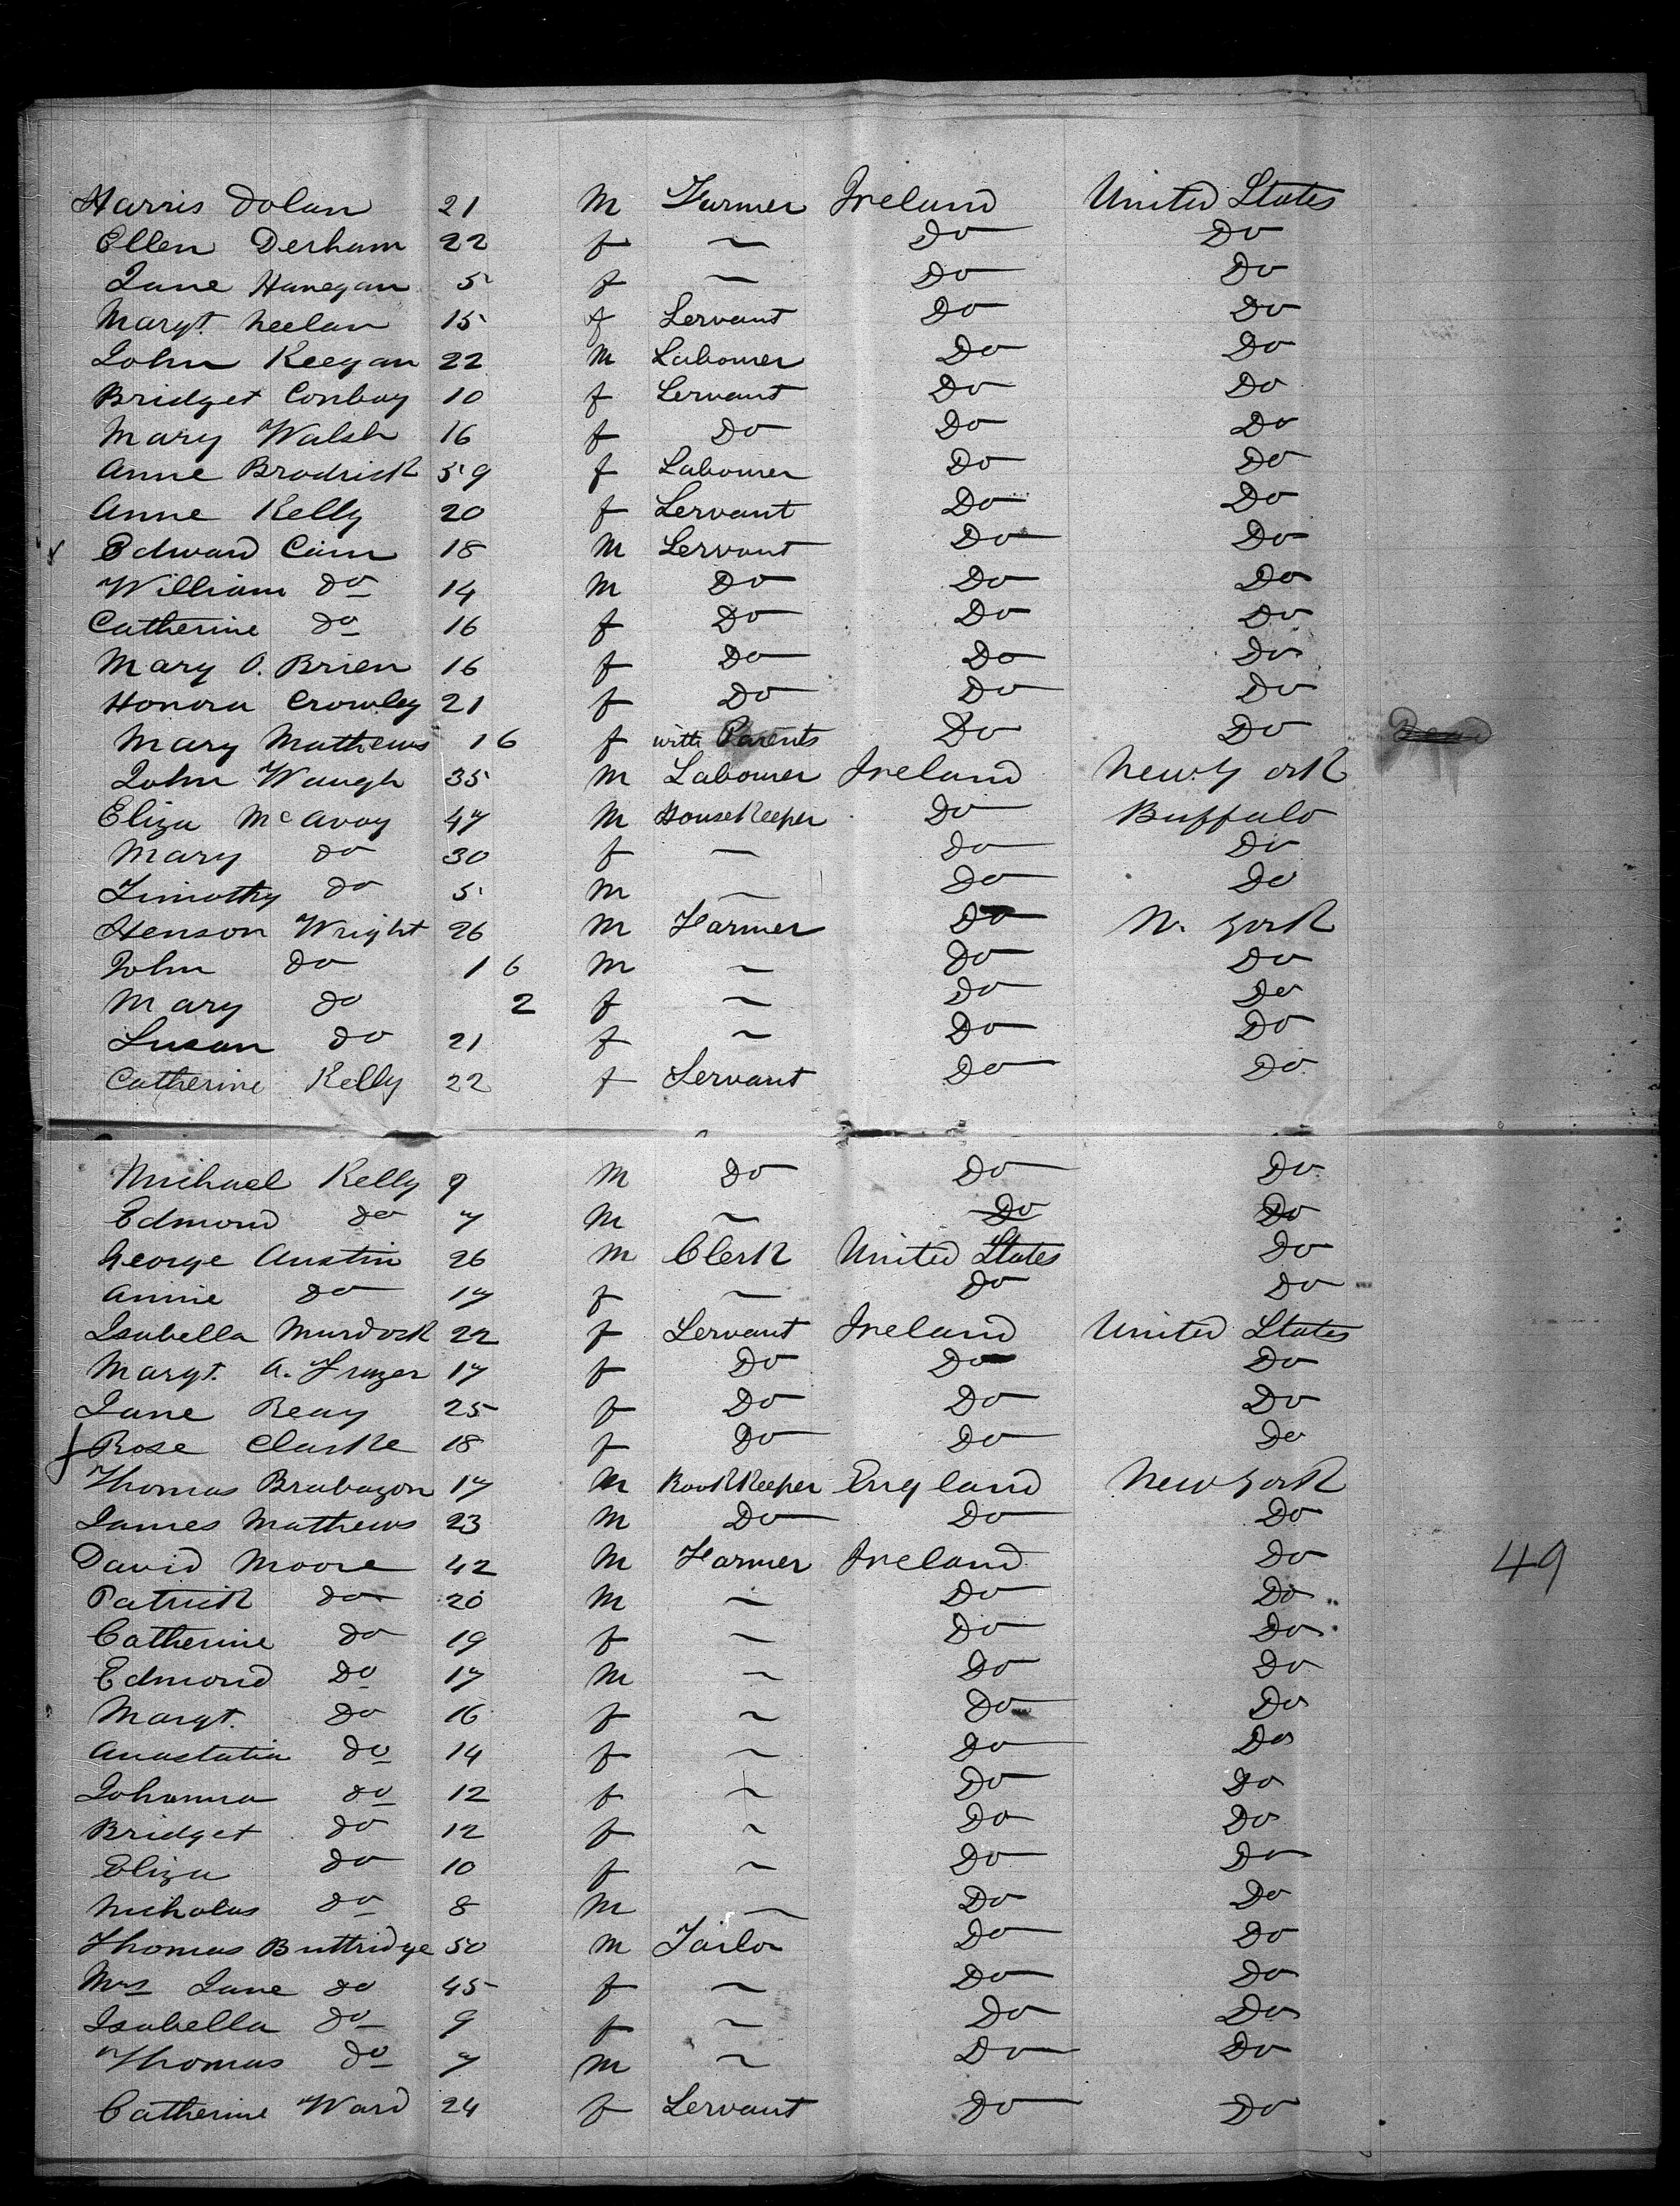 Harris Dolan 21 M Farmer Ireland United States
Ellen Derham 22 f ~ Do Do
Jane Hanegan 5 f ~ Do Do
Margt. Neelan 15 f Servant Do Do
John Keegan 22 M Labourer Do Do
Bridget Conboy 10 f Servant Do Do
Mary Walsh 16 f Do Do Do
Anne Brodrick 59 f Labourer Do Do
Anne Kelly 20 f Servant Do Do
Edward Cain 18 M Servant Do Do
William do 14 M Do Do Do
Catherine do 16 f Do Do Do
Mary O. Brien 16 f Do Do Do
Honora Crowley 21 f Do Do Do
Mary Mathews 16 f with Parents Do Do
John Waugh 35 M Labourer Ireland New York
Eliza McAvoy 47 M HouseKeeper Do Buffalo
Mary do 30 f ~ Do Do
Timothy do 5 M ~ Do Do
Henson Wright 26 M Farmer Do N. York
John do 16 M ~ Do Do
Mary do 2 f ~ Do Do
Susan do 21 f ~ Do Do
Catherine Kelly 22 f Servant Do Do
Michael Kelly 9 M Do Do Do
Edmond do 7 M ~ Do Do
George Austin 26 M Clerk United States Do
Annie do 17 f ~ Do Do
Isabella Murdock 22 f Servant Ireland United States
Margt. A. Frazer 17 f Do Do Do
Jane Reay 25 f Do Do Do
Rose Clarke 18 f Do Do Do
Thomas Brabazon 17 M BookKeeper England New York
James Mathews 23 M Do Do Do
David Moore 42 M Farmer Ireland Do 49
Patrick do 20 M ~ Do Do
Catherine do 19 f ~ Do Do
Edmond Do 17 M ~ Do Do
Margt. do 16 f ~ Do Do
Anastatia do 14 f ~ Do Do
Johanna do 12 f ~ Do Do
Bridget do 12 f ~ Do Do
Eliza do 10 f ~ Do Do
Nicholas do 8 M ~ Do Do
Thomas Buttridge 50 M Tailor Do Do
Mrs Jane do 45 f ~ Do Do
Isabella do 9 f ~ Do Do
Thomas do 7 M ~ Do Do
Catherine Ward 24 f Servant Do Do